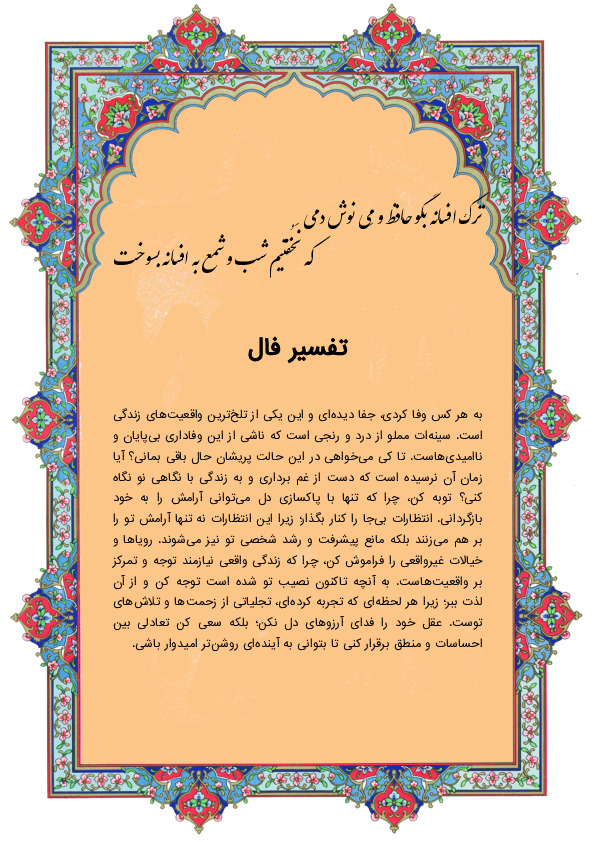 ترک افسانه بگو حافظ و می نوش دمی
که نخفتیم شب و شمع به افسانه بسوخت
تفسیر فال
به هر کس وفا کردی، جفا دیده‌ای و این یکی از تلخ‌ترین واقعیت‌های زندگی
است. سینه‌ات مملو از درد و رنجی است که ناشی از این وفاداری بی‌پایان و
ناامیدی‌هاست. تا کی می‌خواهی در این حالت پریشان حال باقی بمانی؟ آیا
زمان آن نرسیده است که دست از غم برداری و به زندگی با نگاهی نو نگاه
کنی؟ توبه کن، چرا که تنها با پاکسازی دل می‌توانی آرامش را به خود
بازگردانی. انتظارات بی‌جا را کنار بگذار؛ زیرا این انتظارات نه تنها آرامش تو را
بر هم می‌زنند بلکه مانع پیشرفت و رشد شخصی تو نیز می‌شوند. رویاها و
خیالات غیرواقعی را فراموش کن، چرا که زندگی واقعی نیازمند توجه و تمرکز
بر واقعیت‌هاست. به آنچه تاکنون نصیب تو شده است توجه کن و از آن
لذت ببر؛ زیرا هر لحظه‌ای که تجربه کرده‌ای، تجلیاتی از زحمت‌ها و تلاش‌های
توست. عقل خود را فدای آرزوهای دل نکن؛ بلکه سعی کن تعادلی بین
احساسات و منطق برقرار کنی تا بتوانی به آینده‌ای روشن‌تر امیدوار باشی.